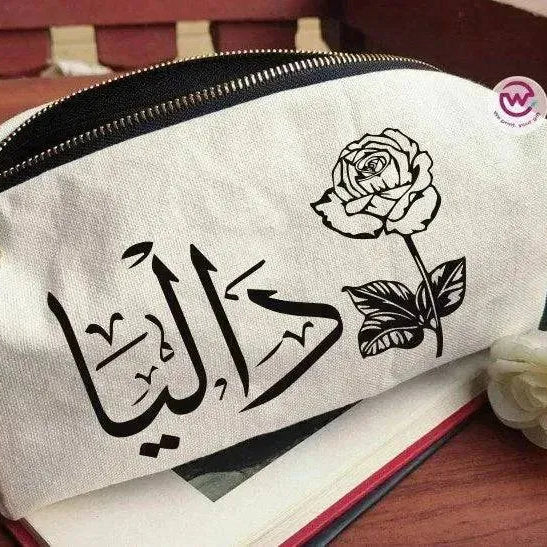 داليا
We print, your gift